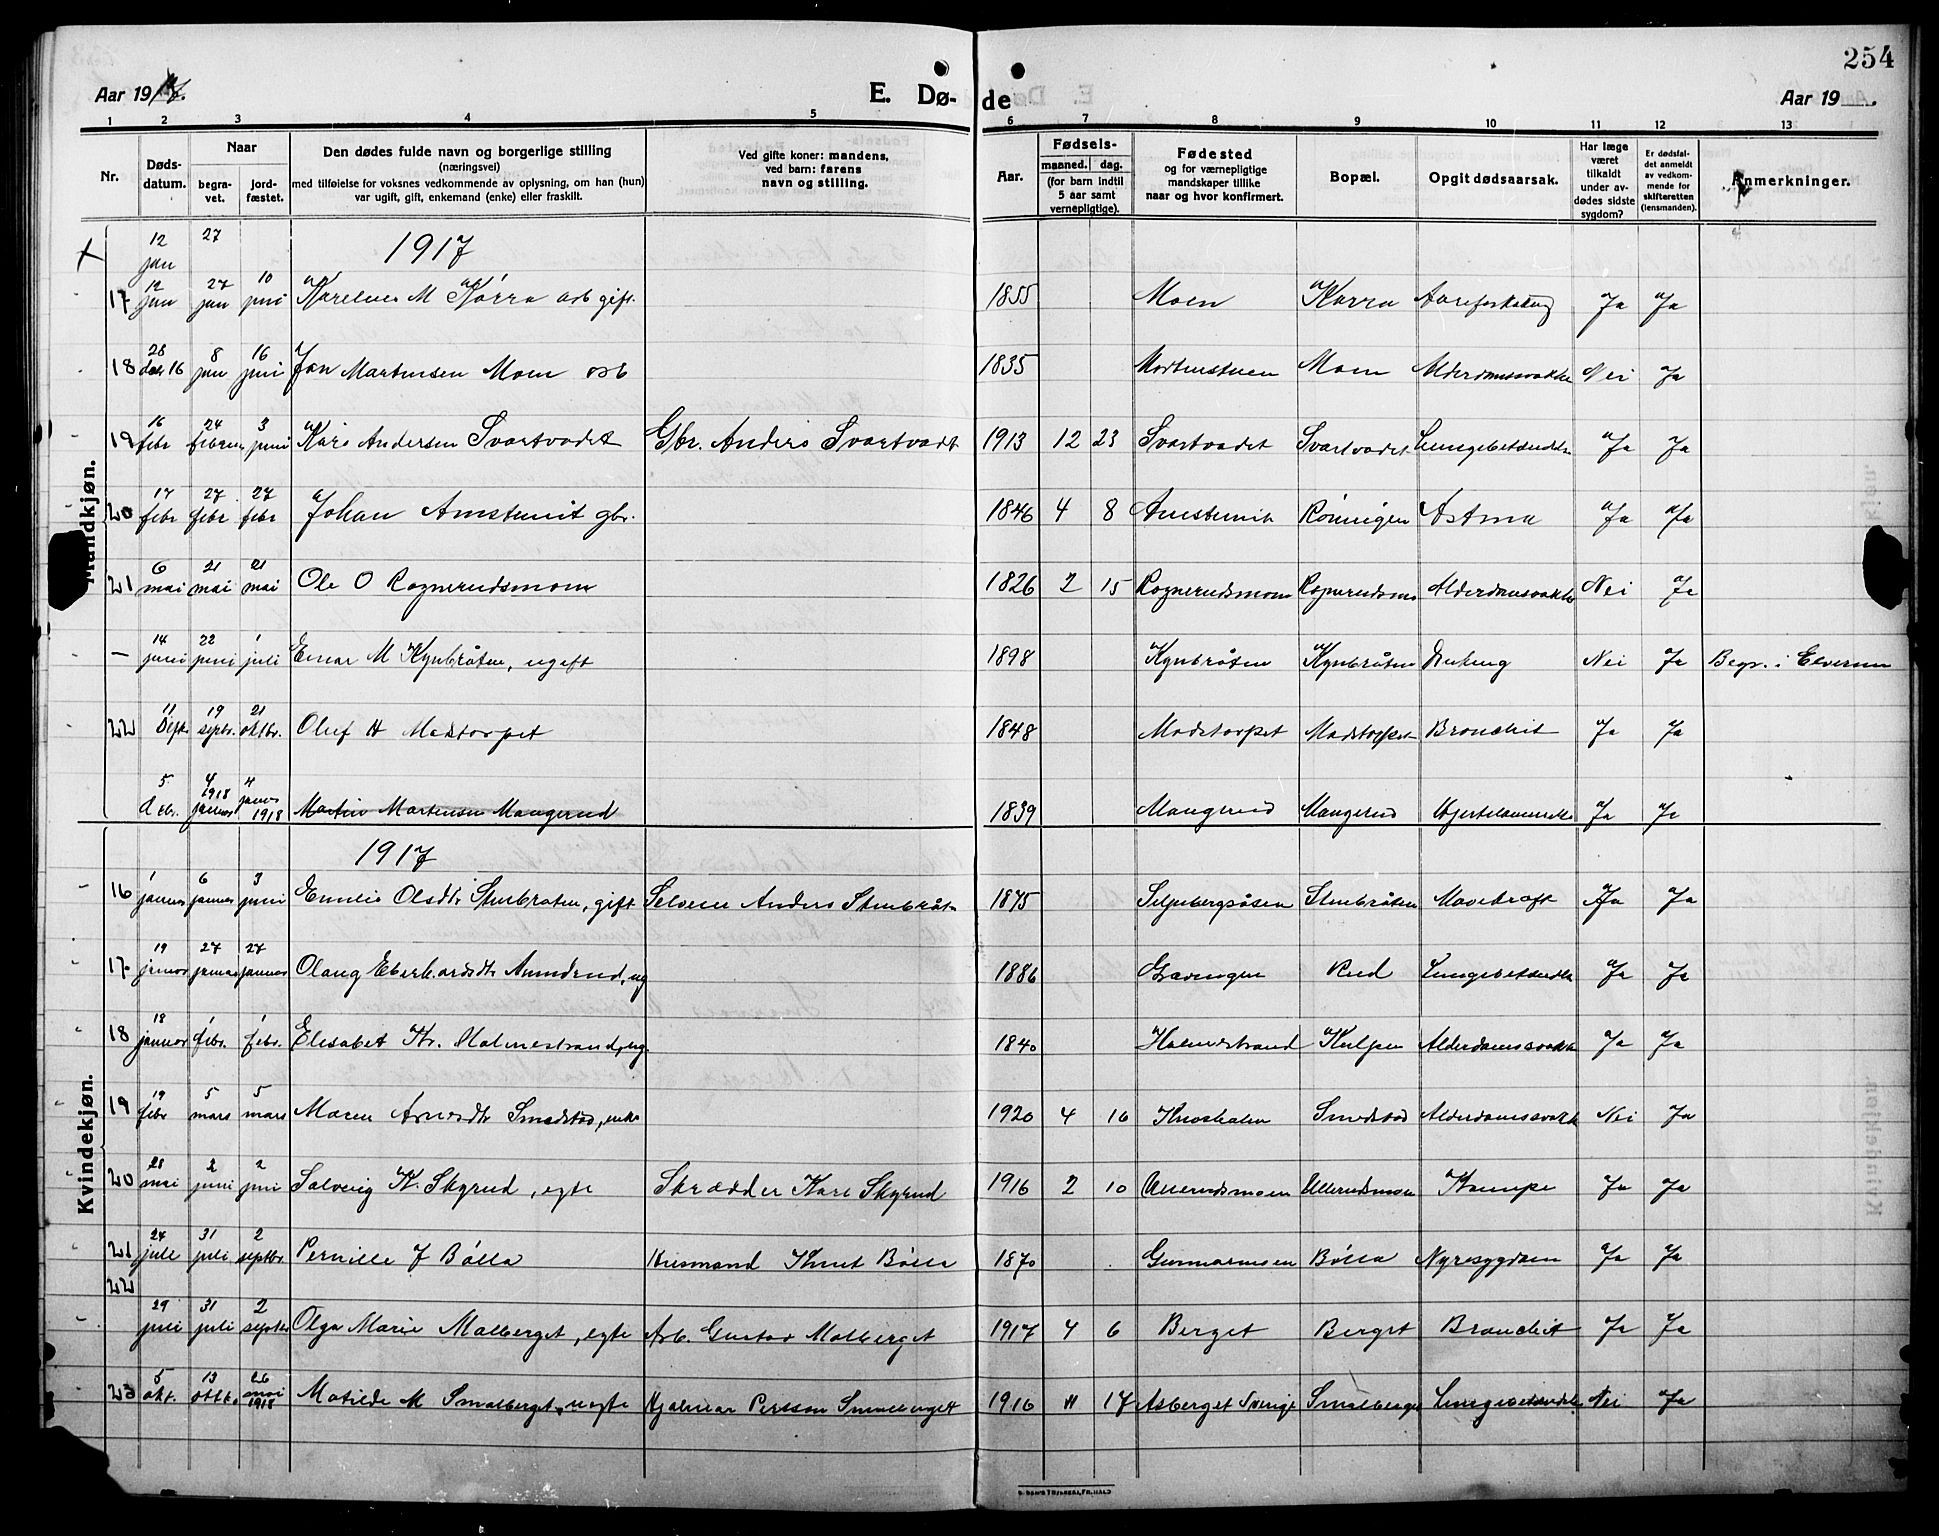 254
Aar 19
E. Dø- de
Aar 19
1 2 3 4 5 6 7 8 9 10 11 12 13
Nr.
Døds-
datum.
Naar
begra-
vet.
jord-
fæstet.
Den dødes fulde navn og borgerlige stilling
(næringsvei)
med tilføielse for voksnes vedkommende av oplysning, om han (hun)
var ugift, gift, enkemand (enke) eller fraskilt.
Ved gifte koner: mandens,
ved barn: farens
navn og stilling.
Aar.
Fødsels-
maaned. dag.
(for barn indtil
5 aar samt
vernepligtige).
Fødested
og for værnepligtige
mandskaper tillike
naar og hvor konfirmert.
Bopæl.
Opgit dødsaarsak.
Har læge
været
tilkaldt
under av-
dødes sidste
sygdom?
Er dødsfal-
det anmeldt
av vedkom-
mende for
skifteretten
(lensmanden).
Anmerkninger.
Mandkjøn.
12 jan 27 1917
17 12 jan 27 jan 10 juni M Kórra arb gift. 1855 Moen Karra Ja Ja
18 28 des 16 8 jan 16 juni Jon Martinsen Moen arb 1835 Moen Alderdomssvakke Nei Ja
19 16 febr 24 februar 3 juni Kåre Andersen Svartvadet Gbr. Anders Svartvadt 1913 12 23 Svartvadet Svartvadet Lungebetændelse Ja Ja
20 17 febr 27 febr 27 febr Johan gbr. 1846 4 8 Rónnigen Astma Ja Ja
21 6 mai 21 mai 21 mai Ole O Rognerudsmoen 1826 2 15 Rognerudsmoen Rognerudsmo Alderdomssvakke Nei Ja
— 14 juni 22 juni 1 juli Einar M Kynbråten, ugift 1898 Kynbråten Kynbråten Nei Ja Begr. i Elverum
22 11 Sept 19 septbr. 21 oktbr. Oluf H Madstorpet 1848 Madstorpet Madstorpet Bronchit Ja Ja
5 debr. 4 1918 januar 4 januar 1918 Martin Martinsen Mangerud 1839 Mangerud Mangerud Ja Ja
Kvindekjøn.
1917
16 1 januar 6 januar 3 juni Emilie Olsdtr Stenbråten, gift Anders Stenbråt 1875 Stenbråten Mavekræft Ja Ja
17 19 januar 27 januar 27 januar Olaug Eberhardsdtr, ug 1886 Rud Lungebetændelse Ja Ja
18 18 januar 1 febr. 1 febr. Elisabet Kr. Holmestrand, ug. 1840 Holmestrand Alderdomssvakke Ja Ja
19 19 febr 5 mars 5 mars Maren Smedstad, enke 1920 4 16 Smedstad Alderdomssvakk Nei Ja
20 28 mai 2 juni 2 juni Solveig K. Skyrud, egte Skrædder Kare Skyrud 1916 2 10 Ullerudsmoen Krampe Ja Ja
21 24 juli 31 juli 2 septbr. Pernille J Bólla Husmand Knut Bólla 1870 Bólla Nyresygdom Ja Ja
22 29 juli 31 juli 2 septbr Olga Marie Malberget, egte Arb. Gustav Malberget 1917 4 6 Berget Berget Bronchit Ja Ja
23 5 okt. 13 oktb. 26 mai 1918 Matilde M Smalberget uegte Hjalmar Persson Smalberget 1916 4 17 Asberget Sverige Smalberget Lungebetændelse Nei Ja